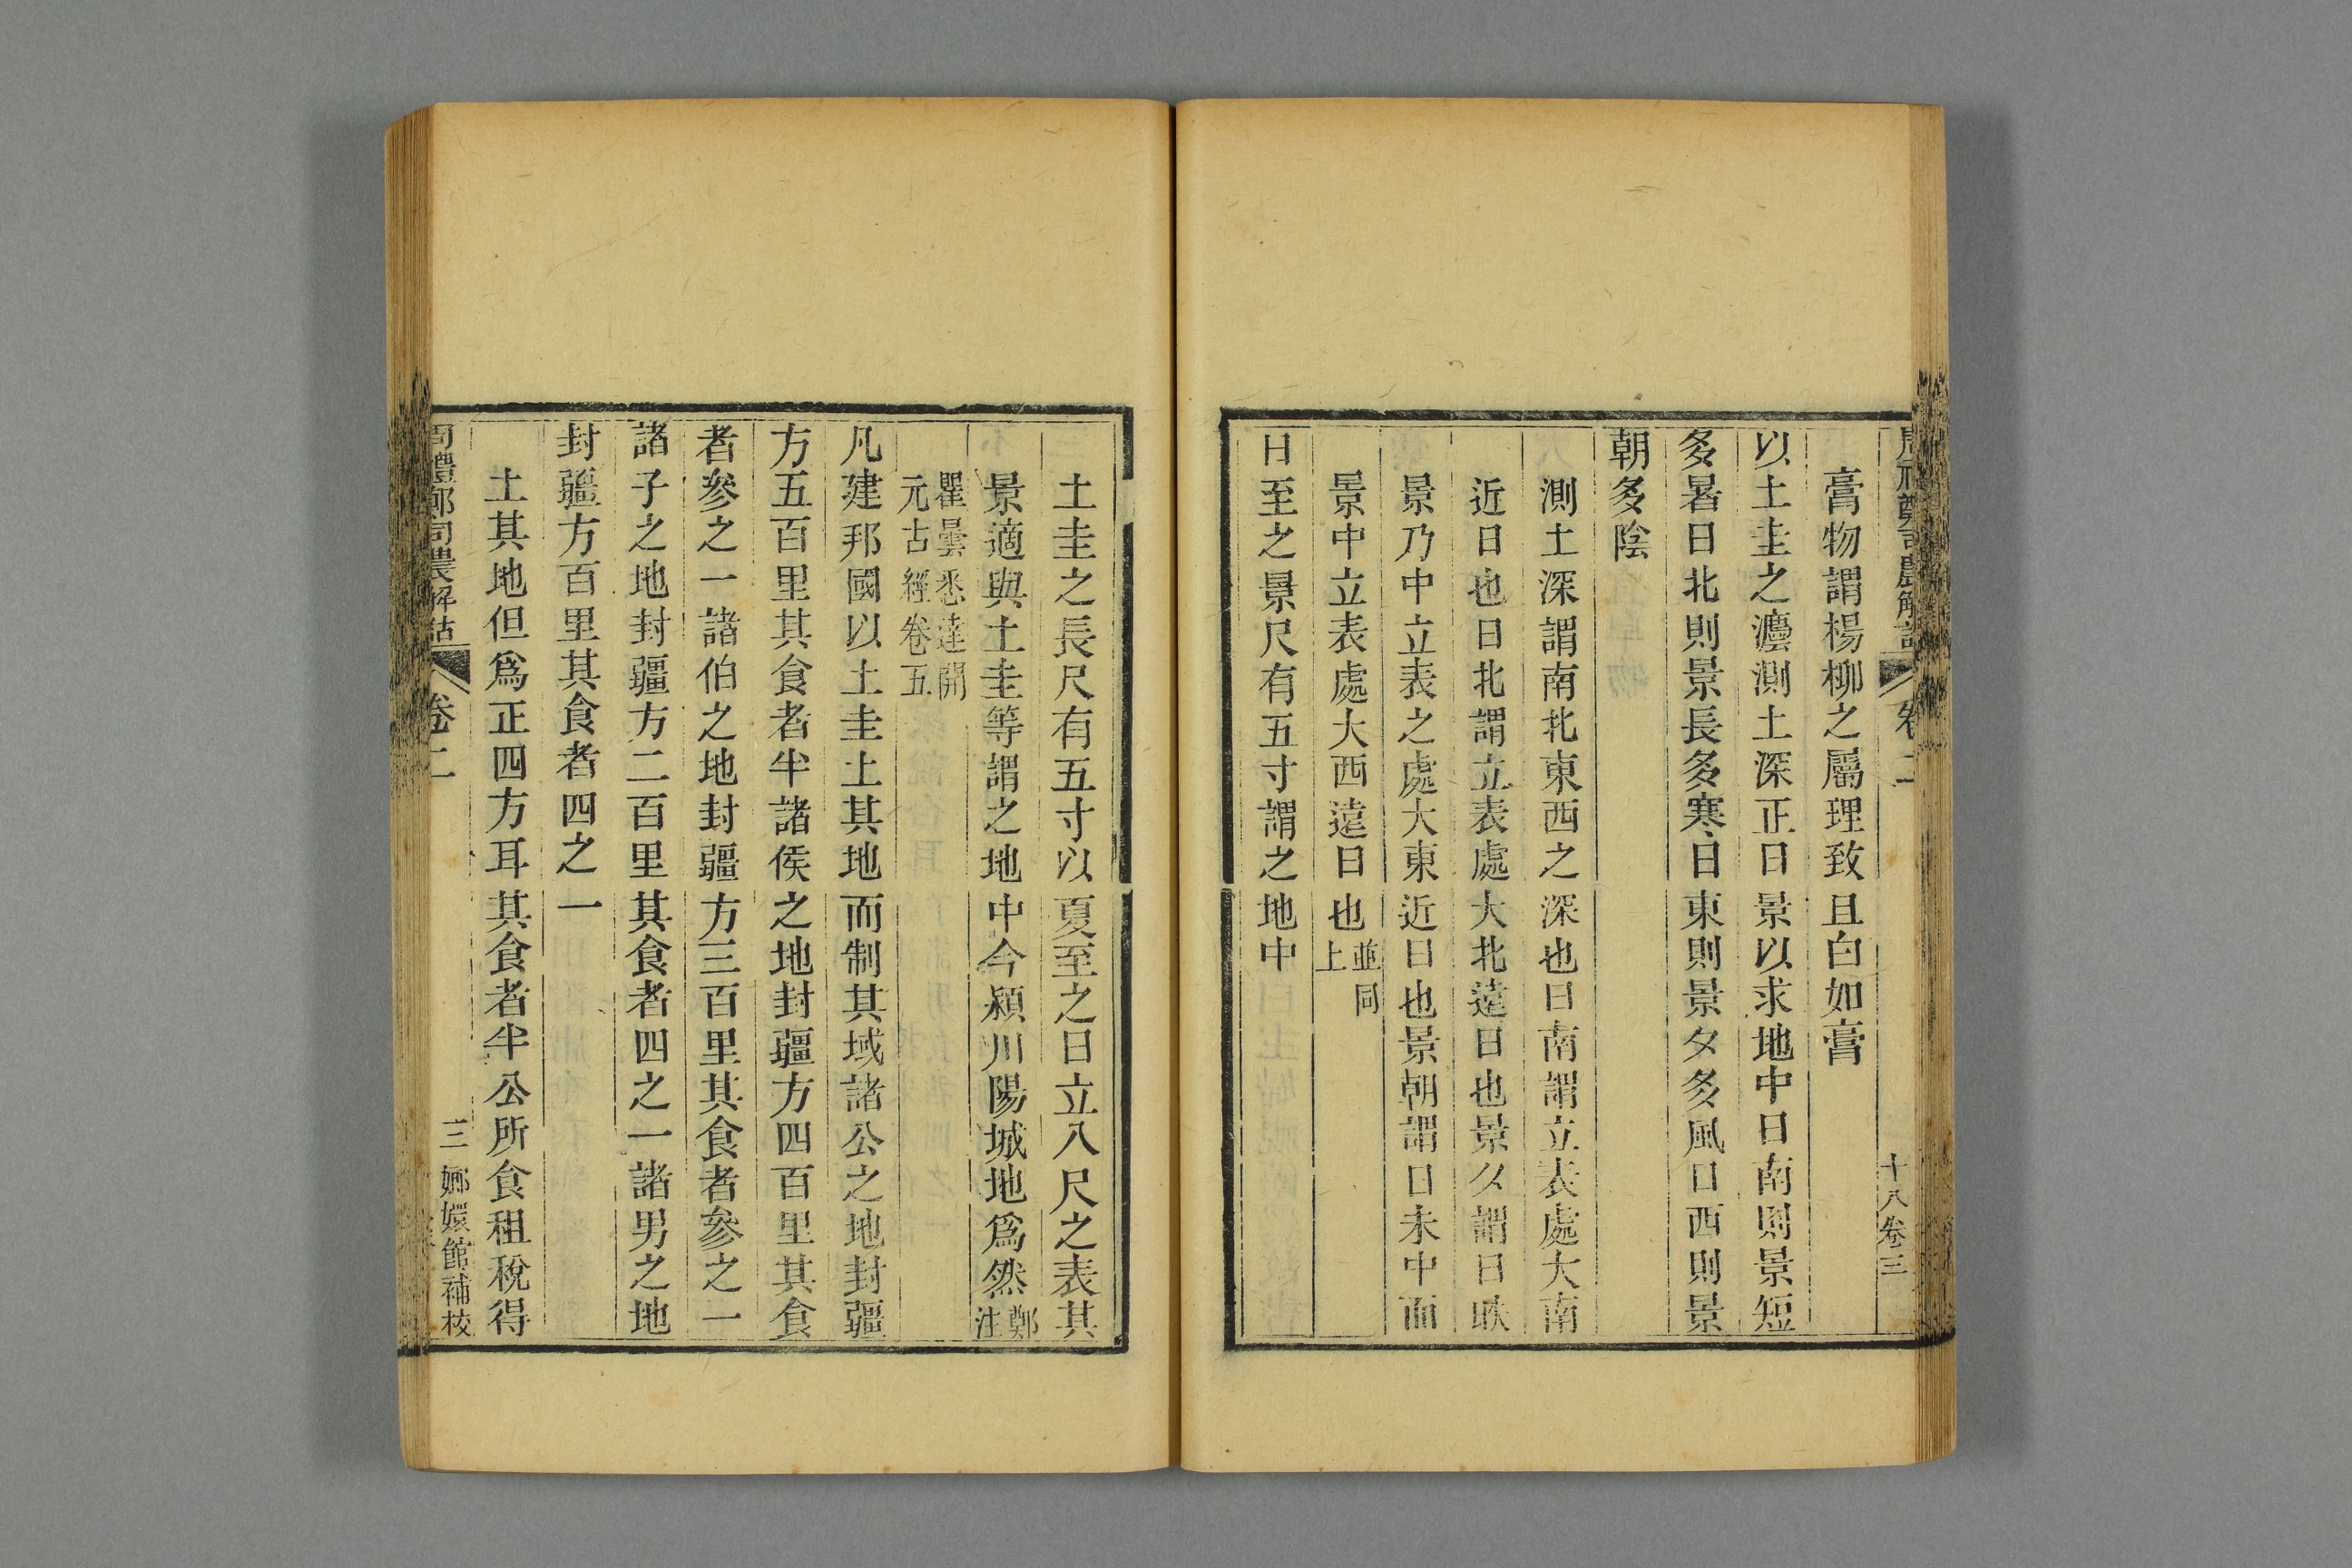 周禮鄭司農解詁 卷二 十八卷三
膏物謂楊柳之屬理致且白如膏
以土圭之灋測土深正日景以求地中日南則景短
多暑日北則景長多寒日東則景夕多風日西則景
朝多陰
測土深謂南北東西之深也日南謂立表處大南
近日也日北謂立表處大北遠日也景夕謂日昳
景乃中立表之處大東近日也景朝謂日未中而
景中立表處大西遠日也並同上
日至之景尺有五寸謂之地中
土圭之長尺有五寸以夏至之日立八尺之表其
景適與土圭等謂之地中今潁川陽城地爲然鄭注
瞿曇悉達開
元古經卷五
凡建邦國以土圭土其地而制其域諸公之地封疆
方五百里其食者半諸侯之地封疆方四百里其食
者參之一諸伯之地封疆方三百里其食者參之一
諸子之地封疆方二百里其食者四之一諸男之地
封疆方百里其食者四之一
土其地但爲正四方耳其食者半公所食租稅得
周禮鄭司農解詁 卷二 三 嫏嬛館補校